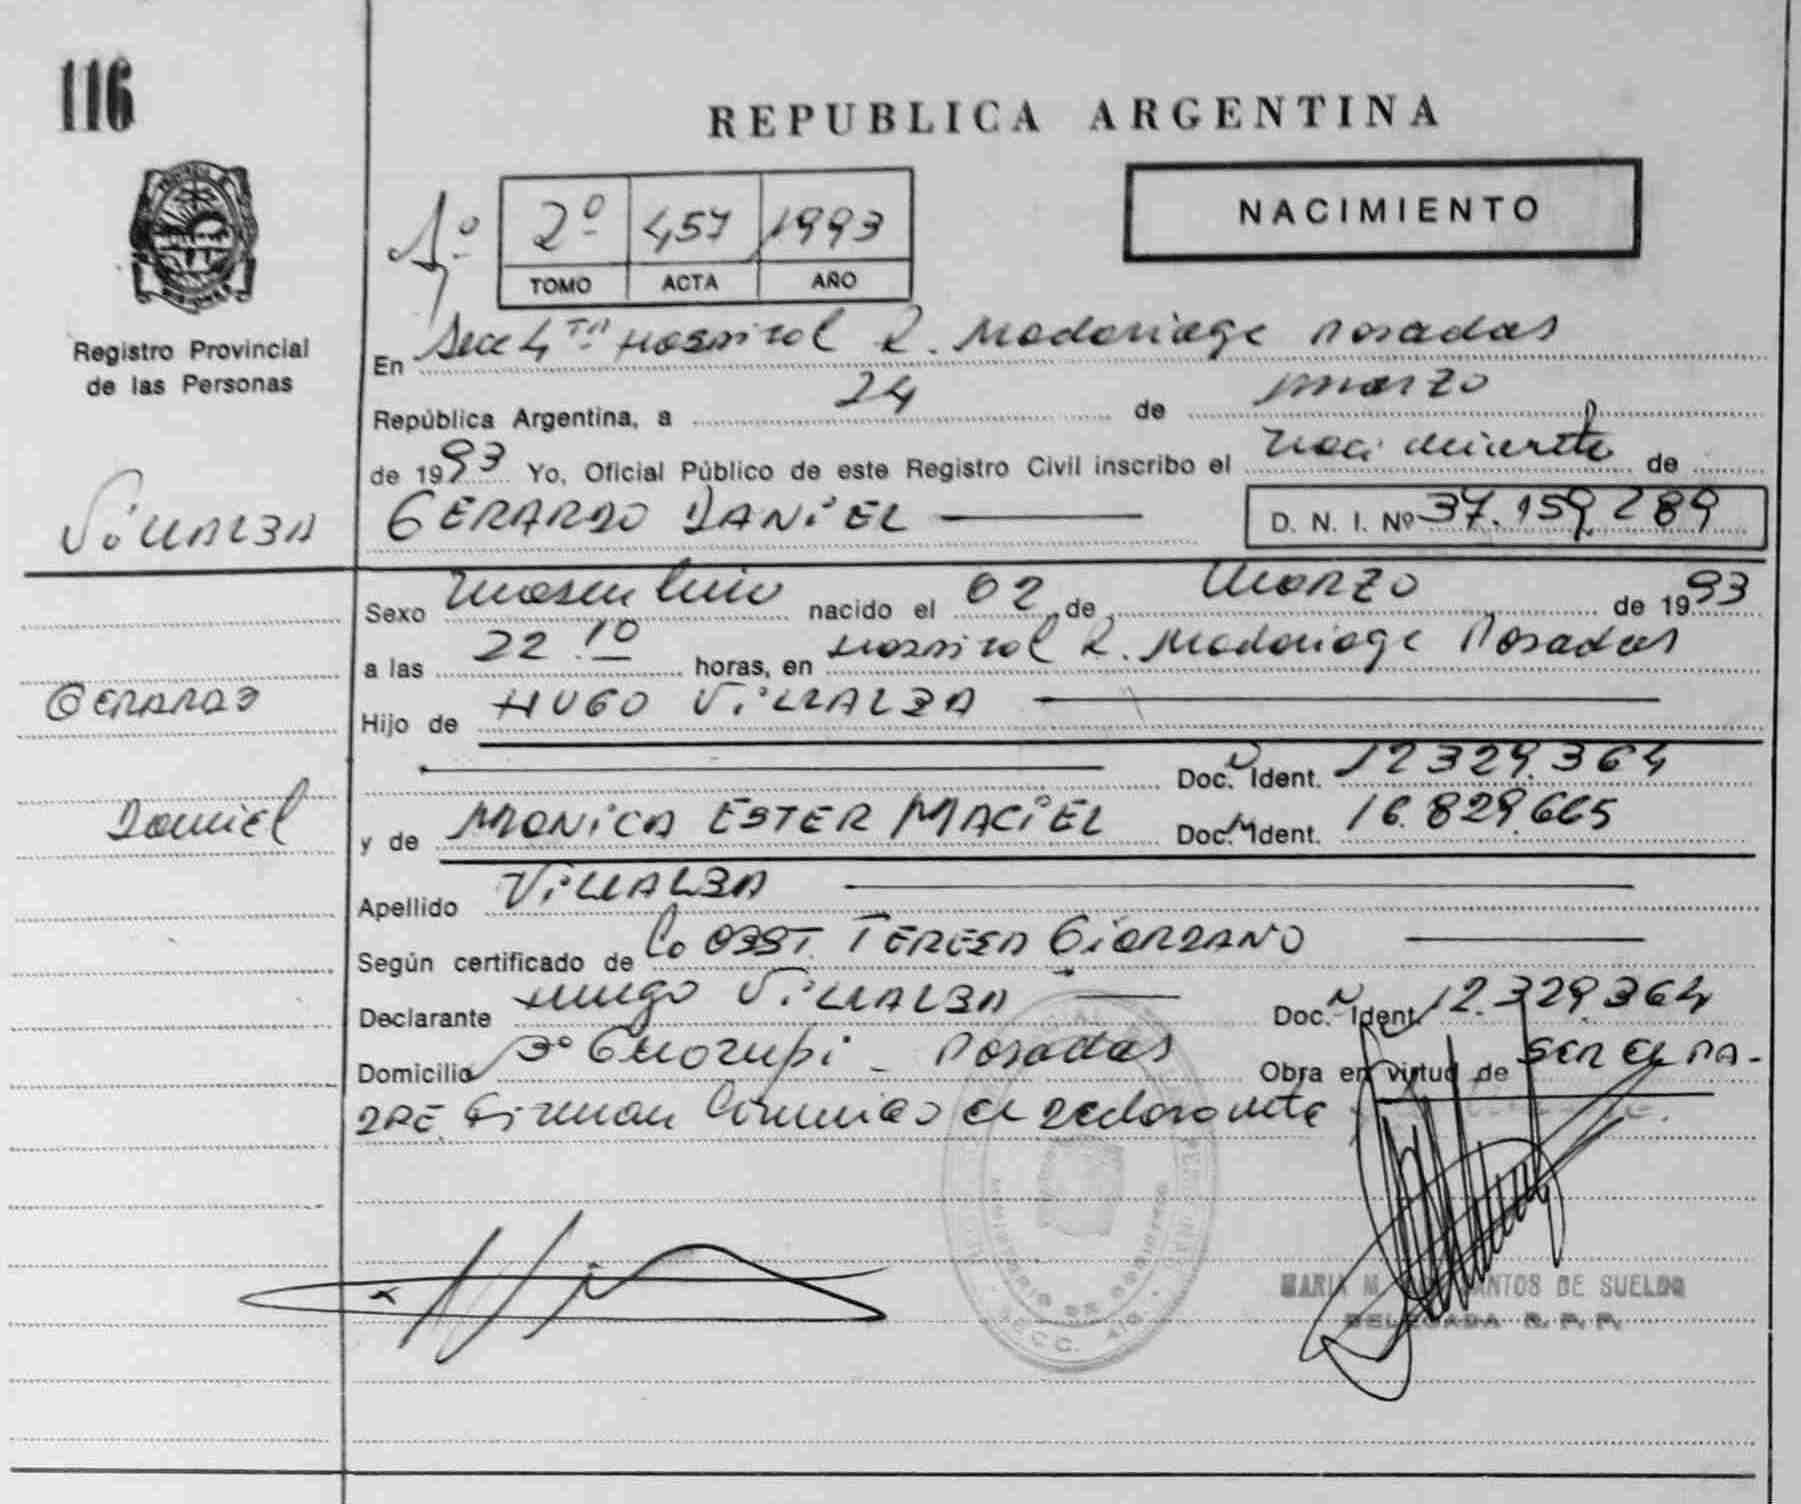 116
REPUBLICA ARGENTINA
NACIMIENTO
1º 2º 457 1993
TOMO ACTA AÑO
Registro Provincial
de las Personas
En Secc 4ta Hospital R. Madariaga Posadas
República Argentina, a 24 de marzo
de 1993 Yo, Oficial Público de este Registro Civil inscribo el nacimiento de
VILLALBA GERARDO DANIEL D. N. I. Nº 37.159289
Sexo masculino nacido el 02 de marzo de 1993
a las 22.10 horas, en Hospital R. Madariaga Posadas
GERARDO
Hijo de HUGO VILLALBA
Doc. Ident. 12329.364
Daniel
y de MONICA ESTER MACIEL Doc. Ident. 16.829.665
Apellido VILLALBA
Según certificado de la OBST. TERESA GIORDANO
Declarante Hugo VILLALBA Doc. Ident. 12.329.364
Domicilio Posadas Obra en virtud de SER EL PA-
DRE Firman conmigo el declarante
MARIA M. SANTOS DE SUELDO
DELEGADA R. P. P.